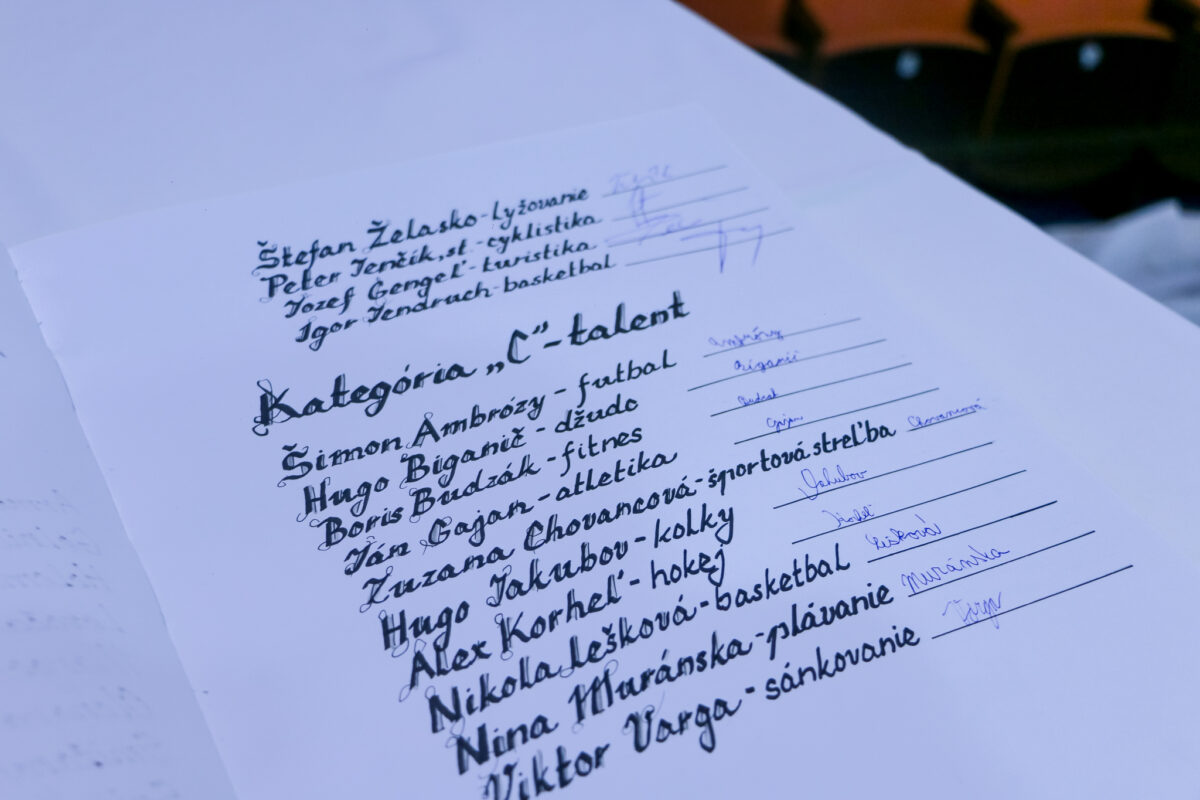 Štefan Želasko - lyžovanie
Peter Jenčík, st. - cyklistika
Jozef Gengeľ - turistika
Igor Jendruch - basketbal
Kategória „C“ - talent
Šimon Ambrózy - futbal Ambrózy
Hugo Biganič - džudo Biganič
Boris Budzák - fitnes
Ján Gajan - atletika Gajan
Zuzana Chovancová - športová streľba Chovancová
Hugo Jakubov - kolky Jakubov
Alex Korheľ - hokej
Nikola Lešková - basketbal Lešková
Nina Muránska - plávanie Muránska
Viktor Varga - sánkovanie Varga